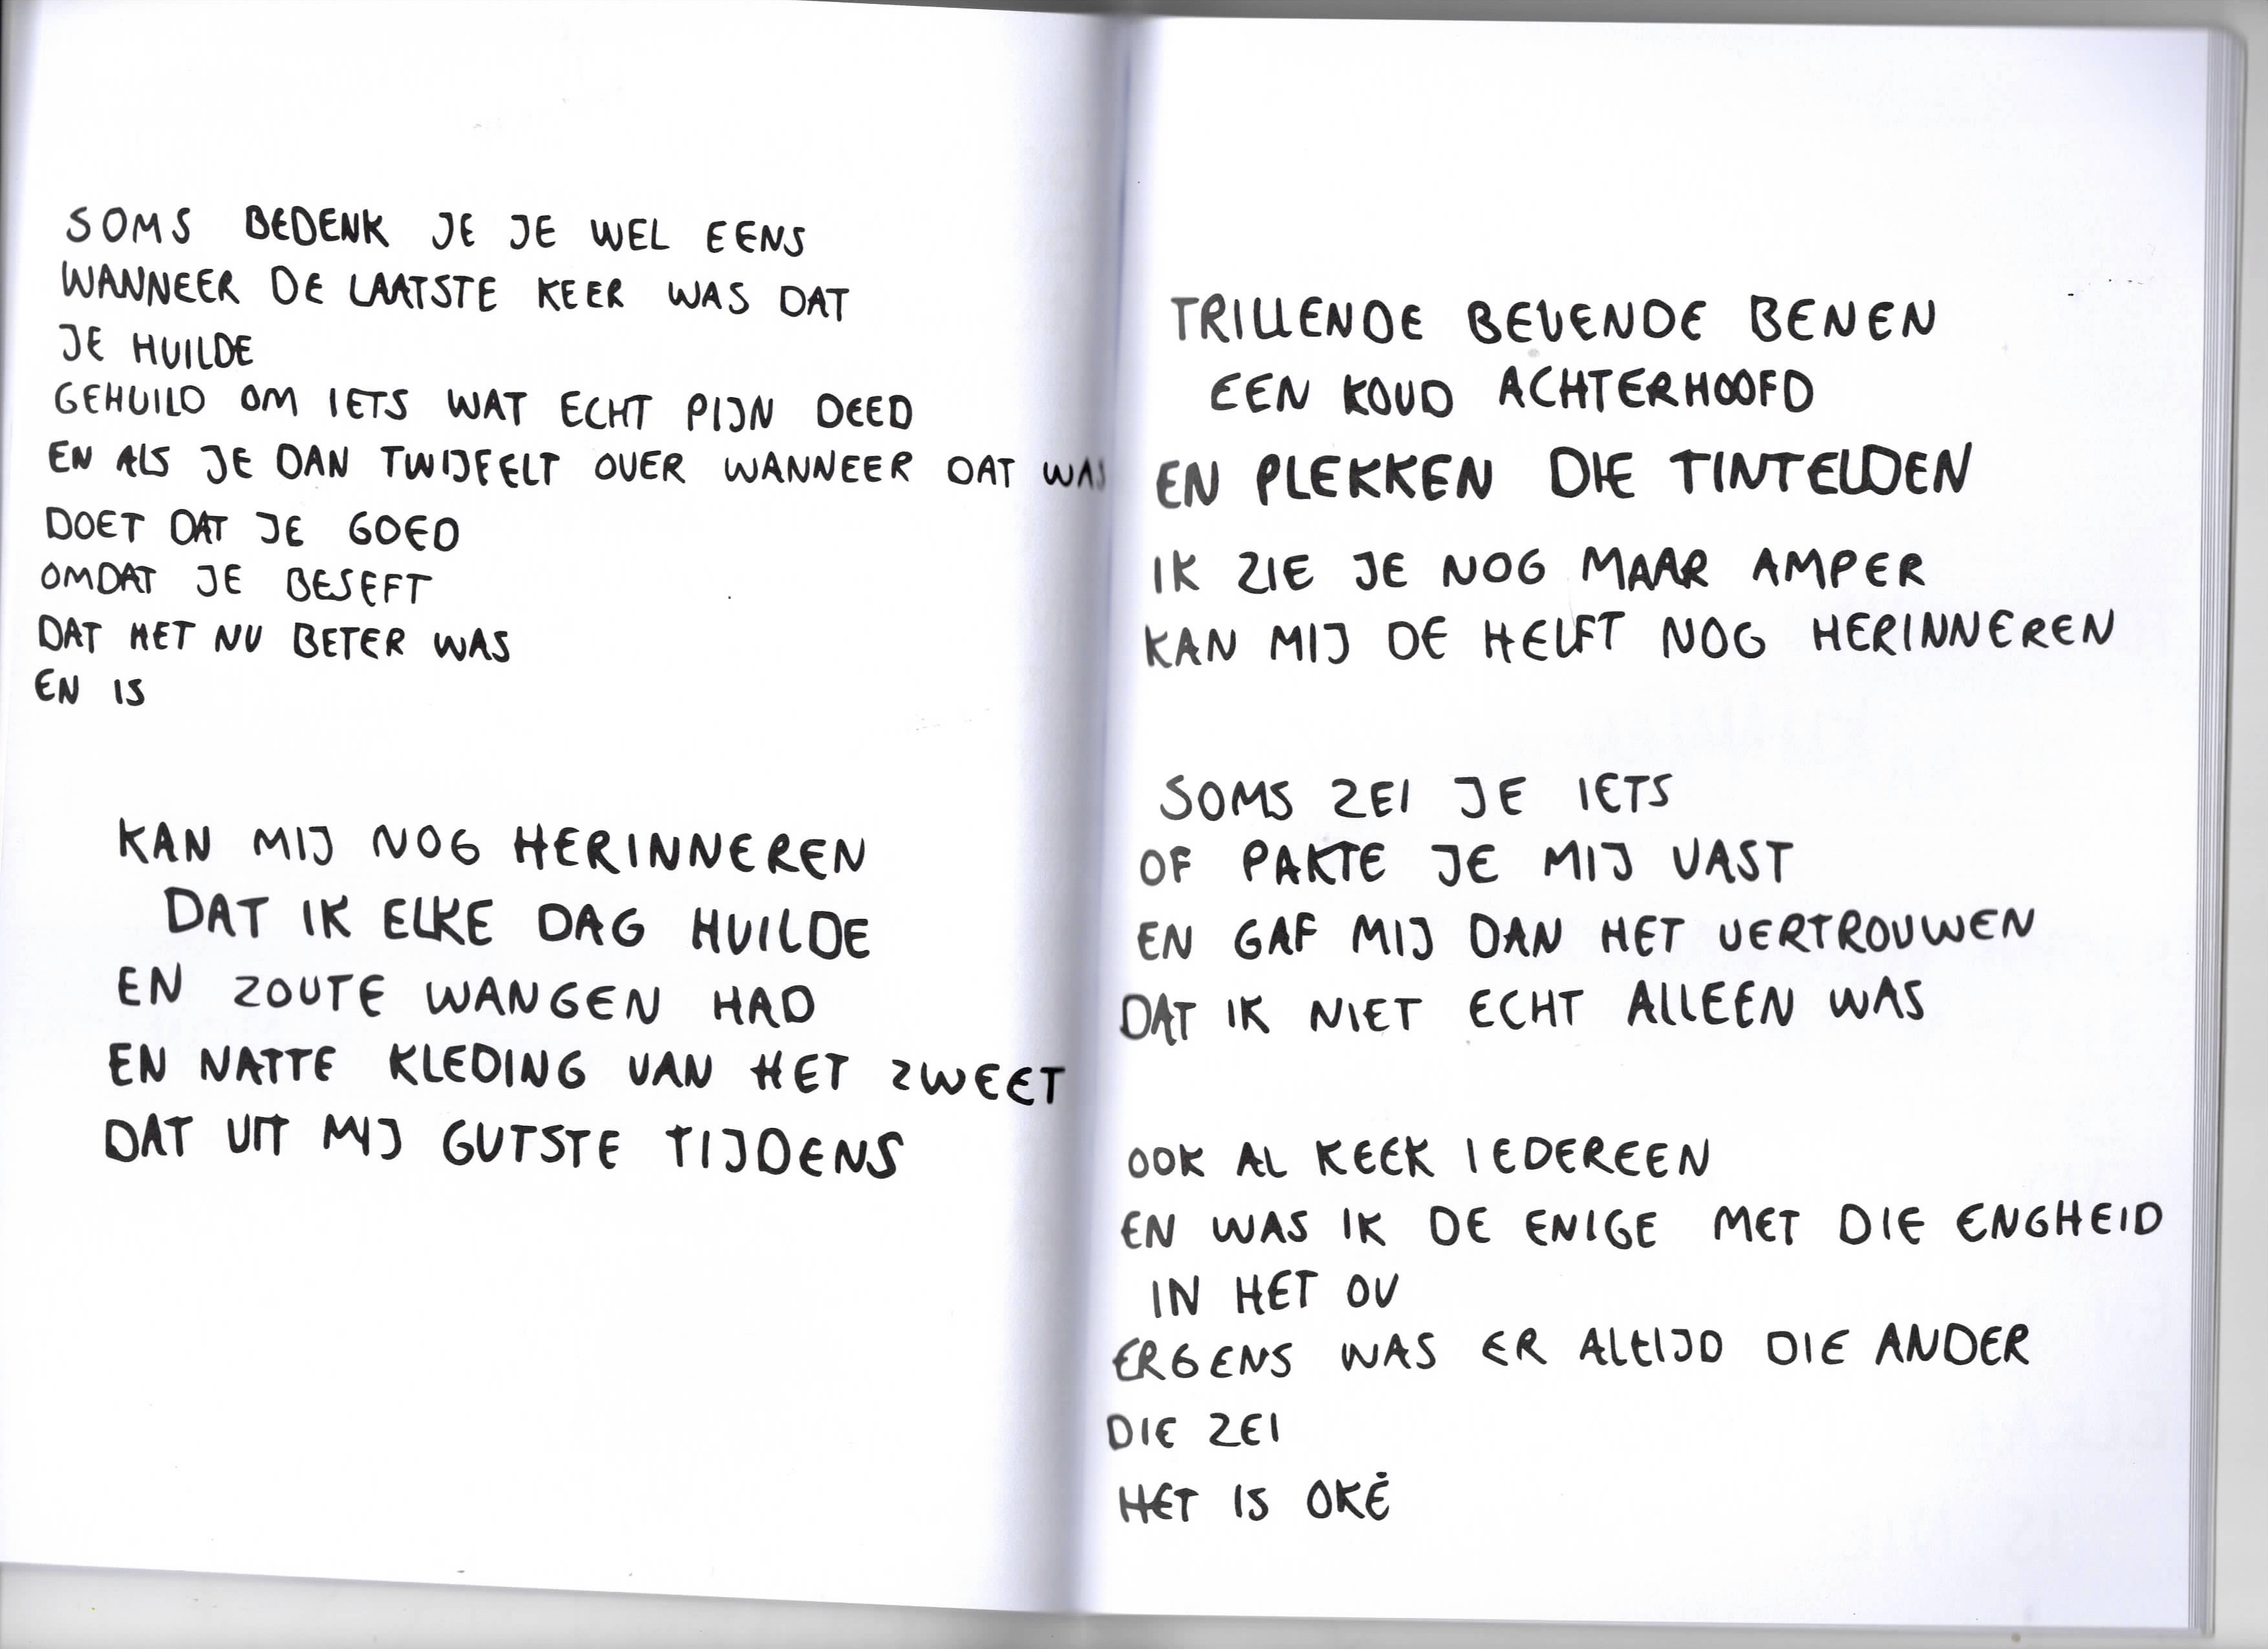 SOMS BEDENK JE JE WEL EENS
WANNEER DE LAATSTE KEER WAS DAT
JE HUILDE
GEHUILD OM IETS WAT ECHT PIJN DEED
EN ALS JE DAN TWIJFELT OVER WANNEER DAT WAS
DOET DAT JE GOED
OMDAT JE BESEFT
DAT HET NU BETER WAS
EN IS
KAN MIJ NOG HERINNEREN
DAT IK ELKE DAG HUILDE
EN ZOUTE WANGEN HAD
EN NATTE KLEDING VAN HET ZWEET
DAT UIT MIJ GUTSTE TIJDENS
TRILLENDE BEVENDE BENEN
EEN KOUD ACHTERHOOFD
EN PLEKKEN DIE TINTELDEN
IK ZIE JE NOG MAAR AMPER
KAN MIJ DE HELFT NOG HERINNEREN
SOMS ZEI JE IETS
OF PAKTE JE MIJ VAST
EN GAF MIJ DAN HET VERTROUWEN
DAT IK NIET ECHT ALLEEN WAS
OOK AL KEEK IEDEREEN
EN WAS IK DE ENIGE MET DIE ENGHEID
IN HET OV
ERGENS WAS ER ALTIJD DIE ANDER
DIE ZEI
HET IS OKÉ